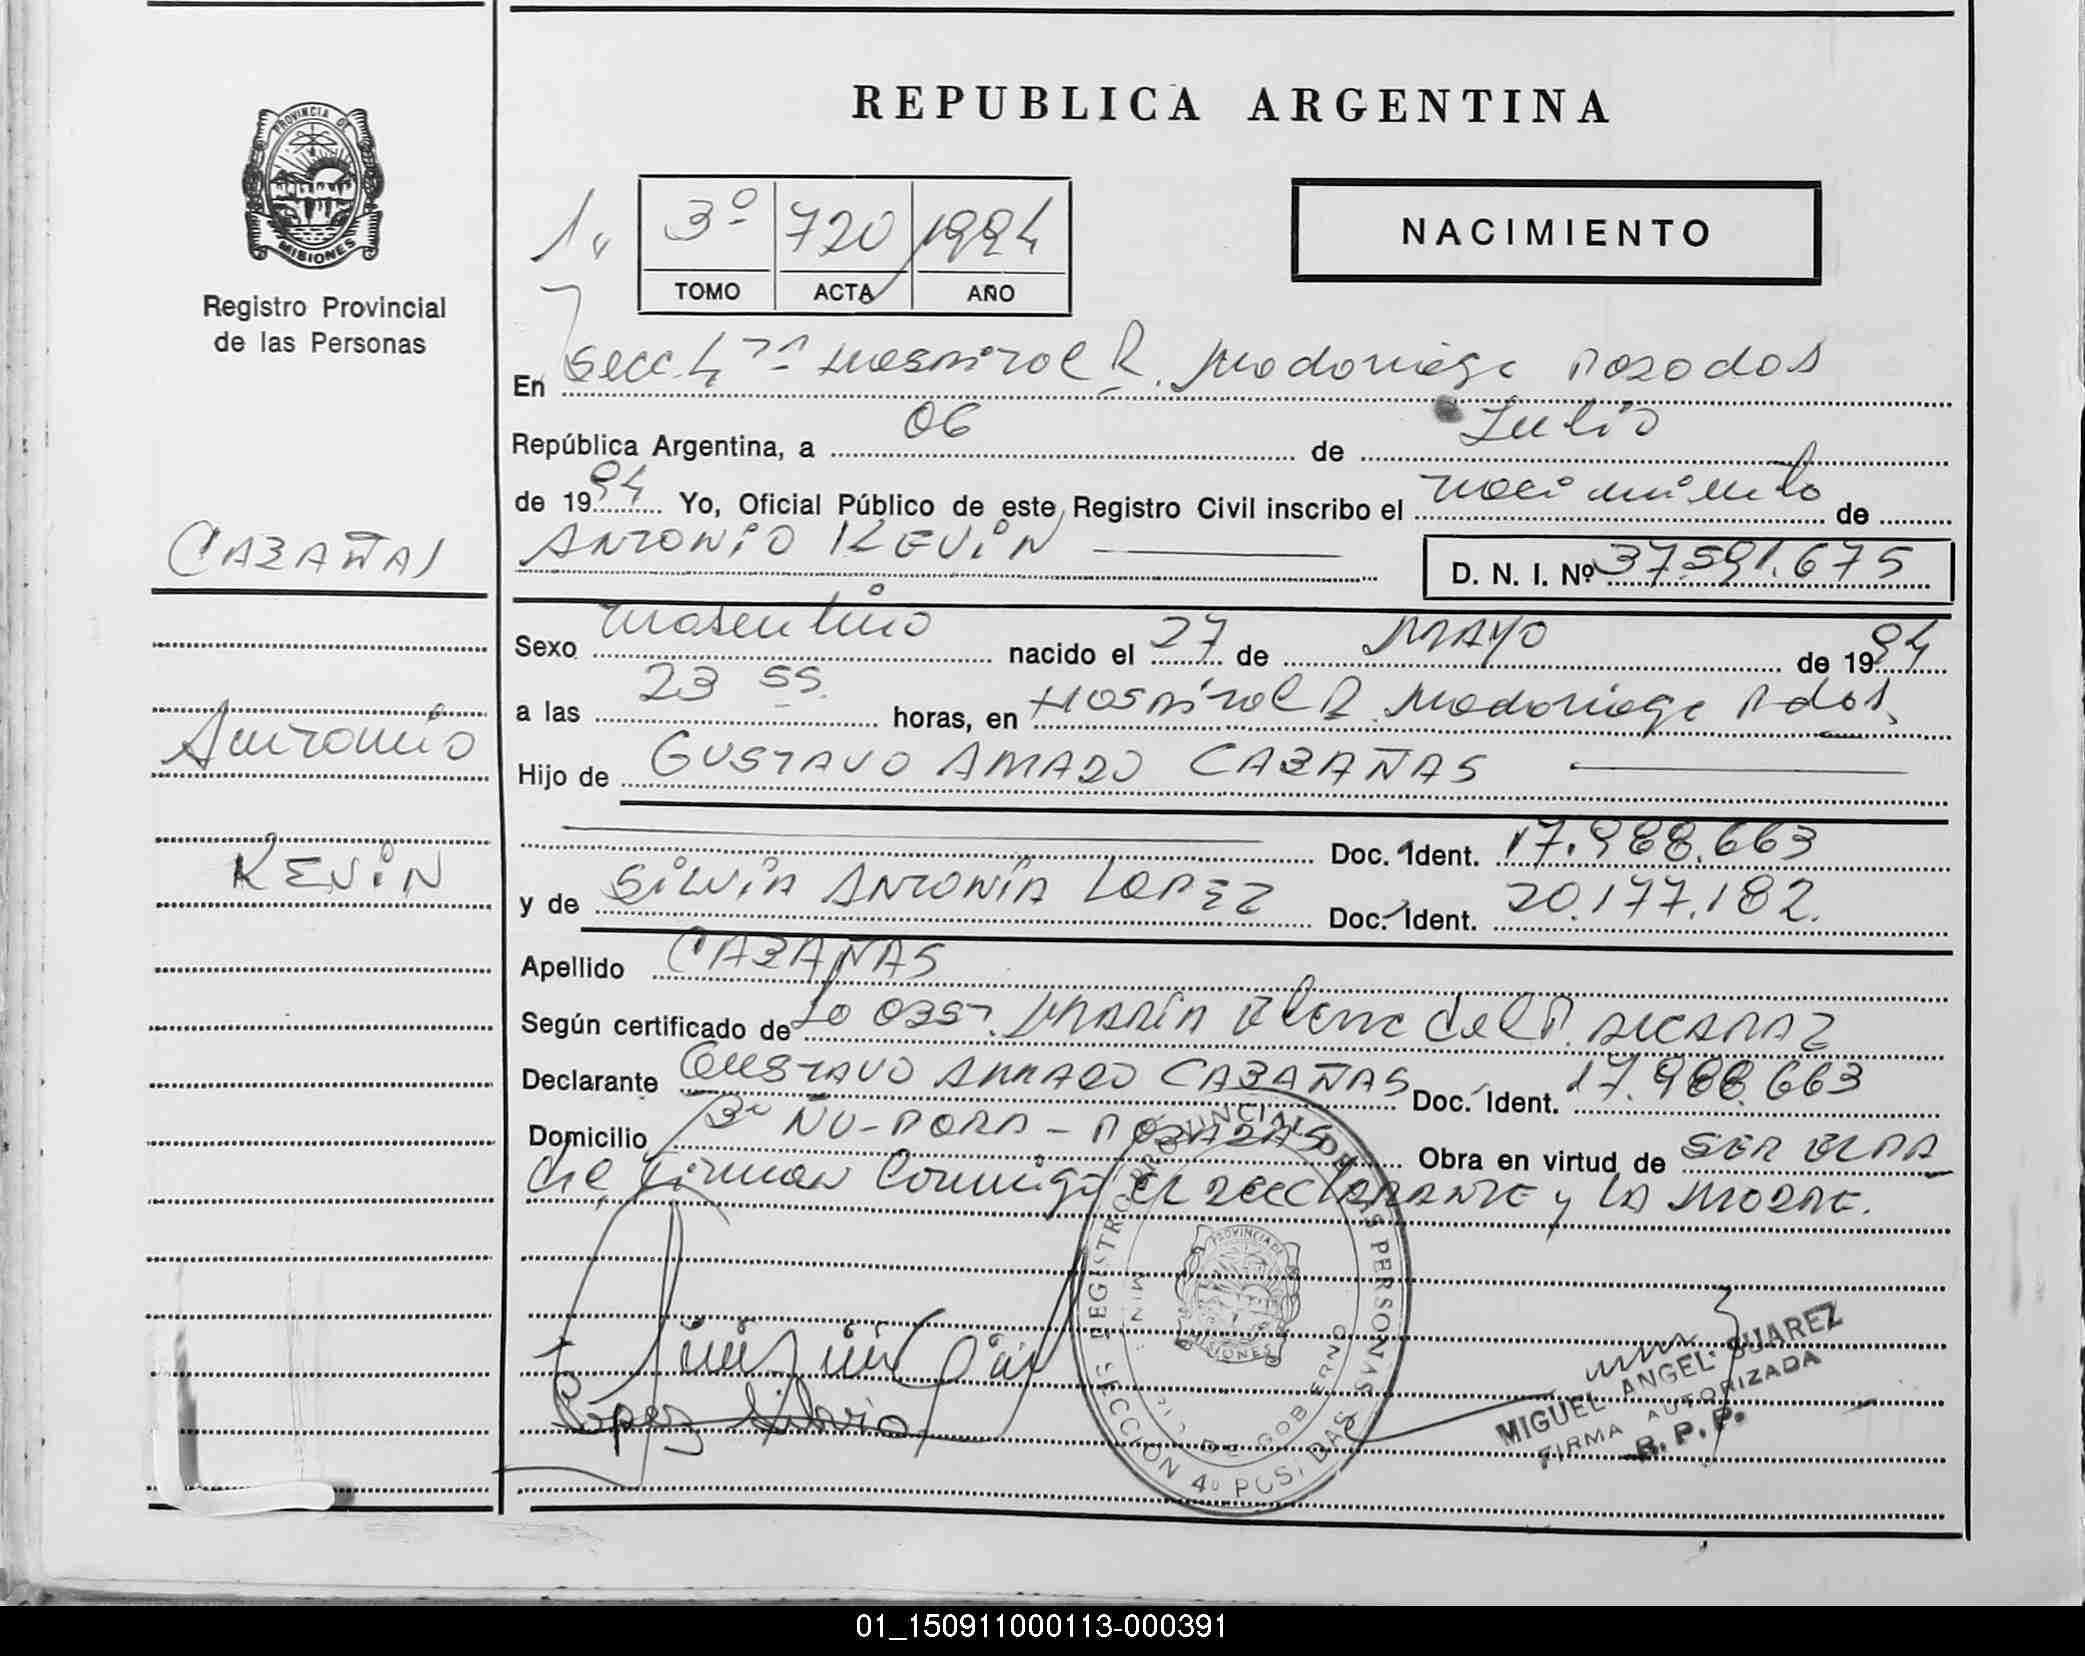 PROVINCIA DE
MISIONES
Registro Provincial
de las Personas
REPUBLICA ARGENTINA
3º 720 1994
TOMO ACTA AÑO
NACIMIENTO
En Secc. 4 Hospital R. Madariaga Posadas
República Argentina, a 06 de Julio
de 1994 Yo, Oficial Público de este Registro Civil inscribo el nacimiento de
ANTONIO KEVIN
D. N. I. Nº 37.591.675
CABAÑAS
Antonio
KEVIN
Sexo Masculino nacido el 27 de MAYO de 1994
a las 23 55 horas, en Hospital R. Madariaga Pdas.
Hijo de GUSTAVO AMADO CABAÑAS
Doc. Ident. 17.988.663
y de SILVIA ANTONIA LOPEZ Doc. Ident. 20.177.182.
Apellido CABAÑAS
Según certificado de la OBST. MARIA Elena del P. ALCARAZ
Declarante GUSTAVO AMADO CABAÑAS Doc. Ident. 17.988.663
Domicilio Bº ÑU-PORA - POSADAS Obra en virtud de SER EL PA
dre, Firman Conmigo EL DECLARANTE y LA MADRE.
REGISTRO PROVINCIAL DE LAS PERSONAS
SECCION 4º POSADAS
DE GOBIERNO
PROVINCIA DE
MISIONES
López Silvia
MIGUEL ANGEL SUAREZ
FIRMA AUTORIZADA
R. P. P.
01_150911000113-000391